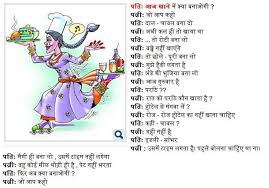 पति: आज खाने में क्या बनाओगी ?
पत्नी: जो आप कहो
पति: दाल - चावल बना दो
पत्नी: अभी कल ही तो खाया था
पति: ... तो रोटी बना लो
पत्नी: बच्चे नहीं खायेंगे
पति: तो छोले - पूरी बना लो
पत्नी: मुझे हैवी लगता है
पति: अंडे की भुजिया बना लो
पत्नी: आज गुरुवार है
पति: परांठे ??
पत्नी: रात को परांठे कौन खाता है ?
पति: होटल से मंगवा लें ?
पत्नी: रोज - रोज होटल का नहीं खाना चाहिए
पति: कढ़ी - चावल ?
पत्नी: दही नहीं है
पति: इडली - सांभर
पत्नी: उसमें टाइम लगता है। पहले बोलना चाहिए था ना।
पति: मैगी ही बना लो , उसमें टाइम नहीं लगेगा
पत्नी: वह कोई मील थोड़ी ही है , पेट नहीं भरता
पति: फिर अब क्या बनाओगी ?
पत्नी: जो आप कहो